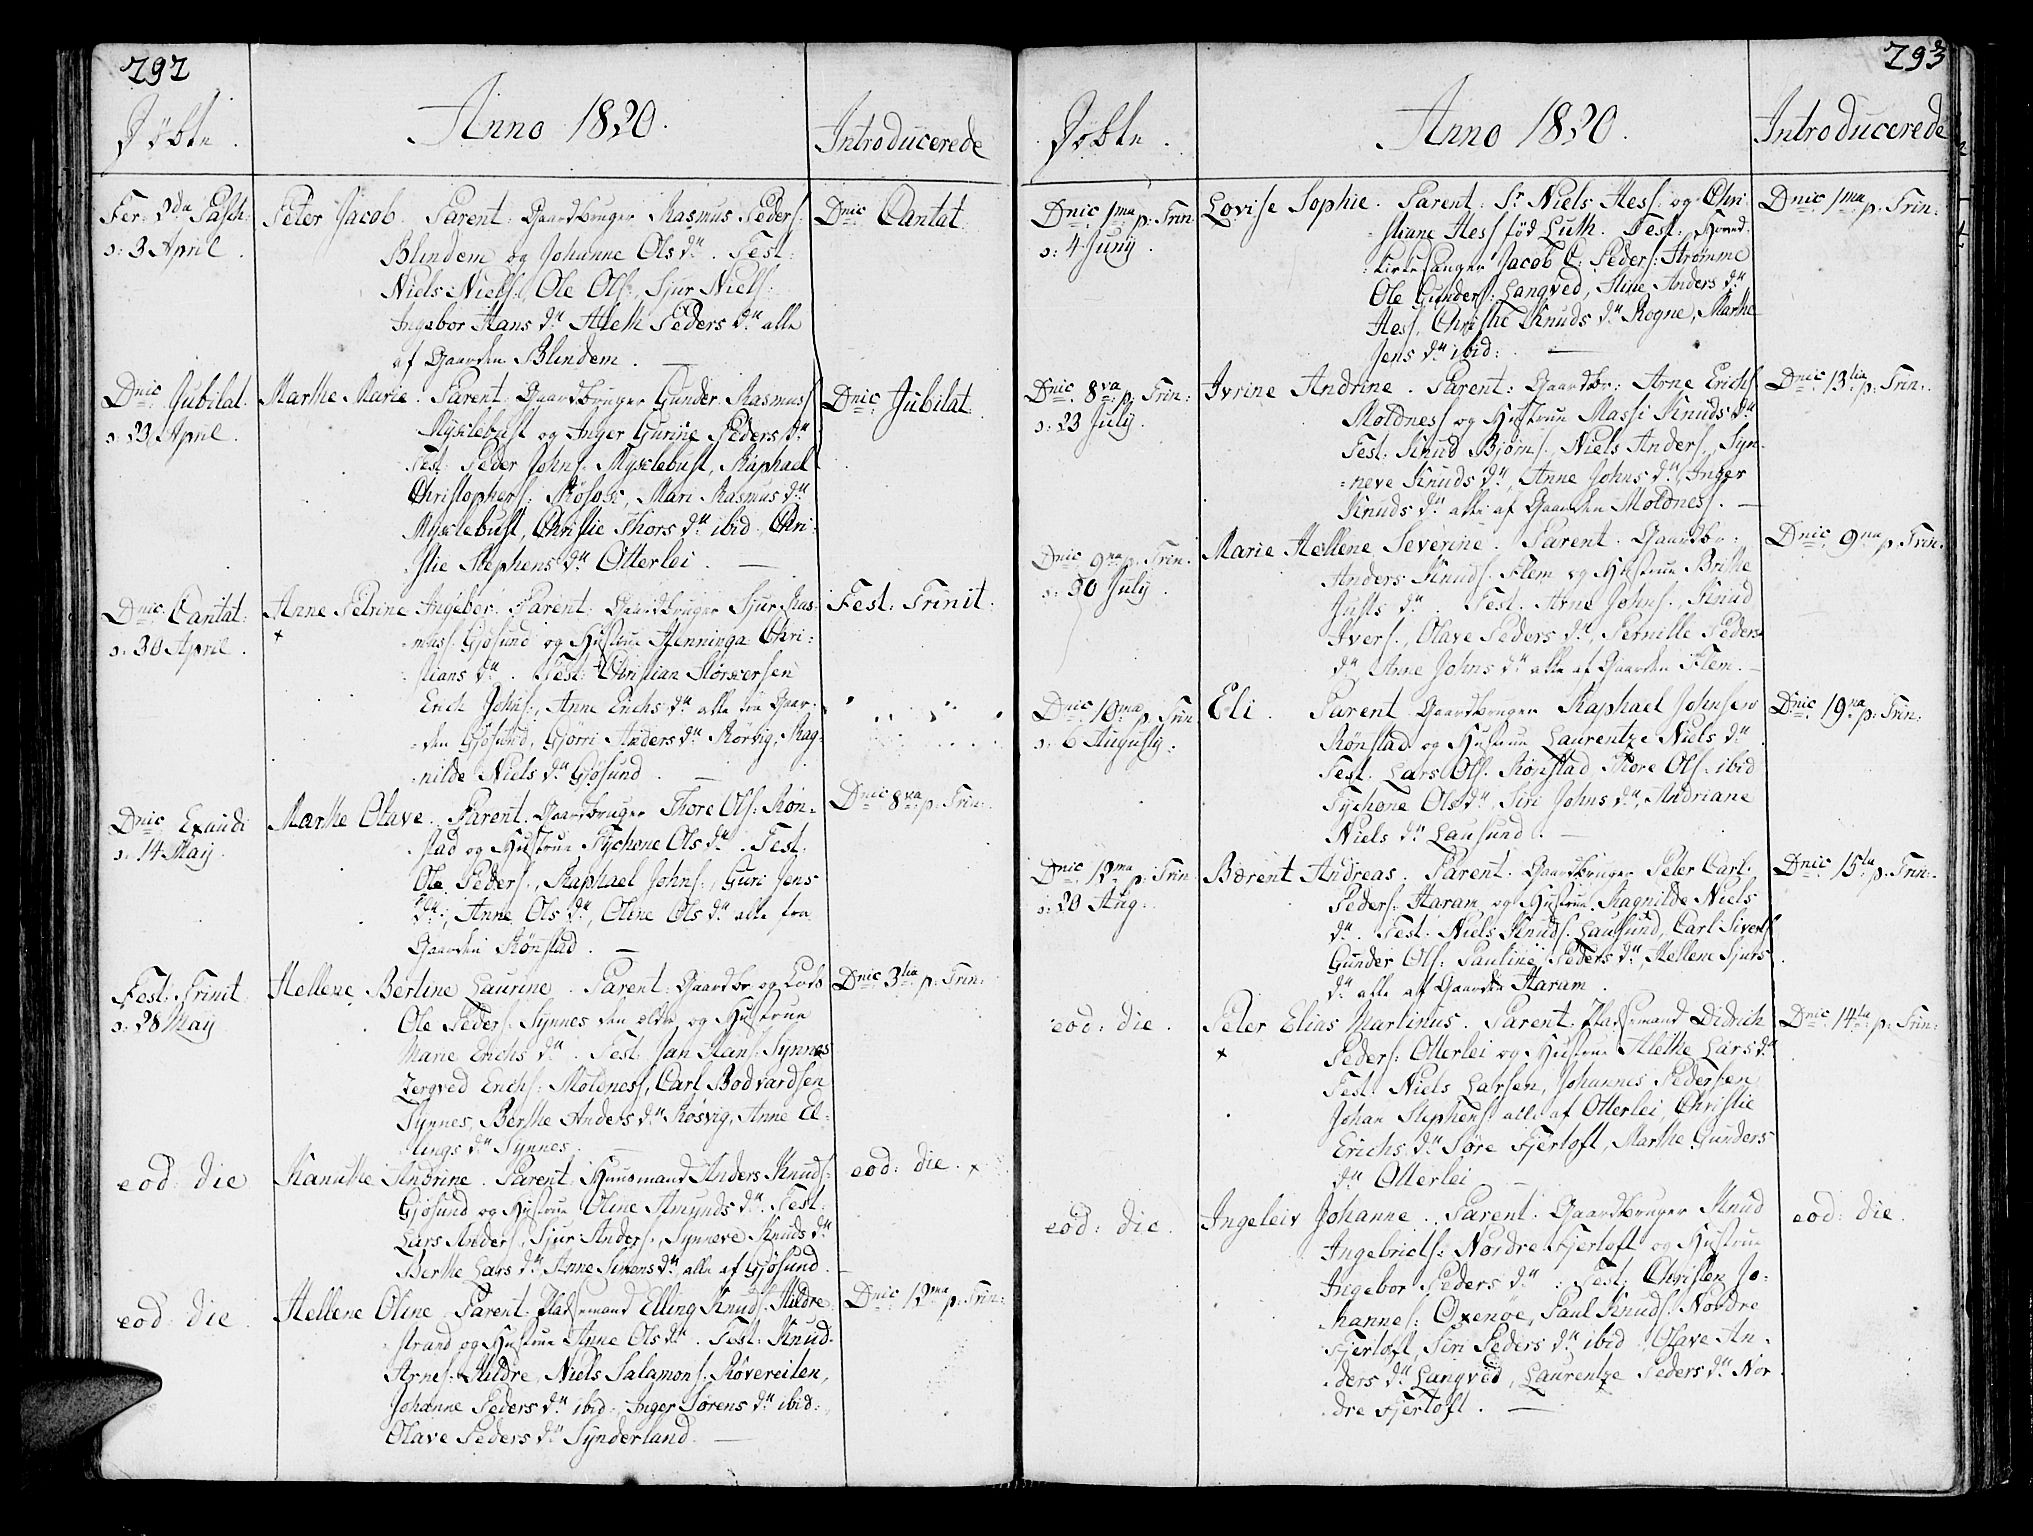 292
Döbte.
Anno 1820.
Introducerede
Fer: 2da Pasch:
ɔ: 3 April.
Peter Jacob. Parent: Gaardbruger Rasmus Peders:
Blindem og Johanne Ols dr. Test:
Niels Niels:, Ole Ols:, Sjur Niels:
Ingebor Hans dr Aleth Peders dr alle
af Gaarden Blindem.
Dnic: Cantat:
Dnic: Jubilat.
ɔ: 23 April.
Marthe Marie. Parent: Gaardbruger Gunder Rasmuss:
Myklebust og Inger Gurine Peders dr
Test: Peder Johns: Myklebust, Raphael
Christophers: Rösok, Mari Rasmus dr
Myklebust, Christie Thors dr ibid, Chri-
stie Stephens dr Otterlei.
Dnic: Jubilat:
Dnic: Cantat:
ɔ: 30 April.
Anne Petrine Ingebor. Parent: Gaardbruger Sjur Ras-
mus: Gjøsund og Hustrue Henninga Chri-
stians dr. Test: Christian Størkersen
Erich Johns:, Anne Erichs dr alle fra Gaar-
den Gjøsund, Gjorri Anders dr Rörvig, Rag-
nilde Niels dr Gjøsund.
Fest: Trinit:
Dnic: Exaudi
ɔ: 14 May.
Marthe Olave. Parent: Gaardbruger Thore Ols: Rön-
stad og Hustrue Tychone Ols dr. Test.
Ole Peders:, Raphael Johns:, Guri Jens
dr, Anne Ols dr, Oline Ols dr alle fra
Gaarden Rønstad.
Dnic 8va p: Trin:
Fest: Trinit
ɔ: 28 May
Hellene Bertine Laurine. Parent: Gaardbr og Lods
Ole Peders: Synnes den ældre og Hustrue
Marie Erichs dr. Test: Jan Hans: Synnes
Zergved Erichs: Moldnes, Carl Bodvardsen
Synnes, Berthe Anders dr Røsvig, Anne El-
lings dr Synnes
Dnic 3tia p: Trin:
eod: die
Kanutte Andrine. Parent: Huusmand Anders Knuds:
Gjøsund og Hustrue Oline Amunds dr. Test:
Lars Anders:, Sjur Anders:, Synneve Knuds dr
Berthe Lars dr Anne Simens dr alle af Gjøsund.
eod: die.
eod: die.
Hellene Oline. Parent: Pladsemand Elling Knuds: Hildre-
strand og Hustrue Anne Ols dr. Test: Knud
Arnes: Hildre, Niels Salamons: Røvereiten,
Johanne Peders dr ibid:, Inger Sørens dr ibid:,
Olave Peders dr Synderland.
Dnic 12ma p: Trin:
293
Döbte.
Anno 1820.
Introducerede
Dnic 1ma p: Trin
ɔ: 4 Juny.
Lovise Sophie. Parent: Sr Niels Hess: og Chri-
stiane Hess föd Luth. Test: Hoved-
kirkesanger Jacob C: Peders: Strømme
Ole Gunders: Langved, Stine Anders dr
Hess, Christie Knuds dr Rogne, Marthe
Jens dr ibid:.
Dnic 1ma p: Trin:
Dnic 8va p: Trin:
ɔ: 23 July.
Ivrine Andrine. Parent: Gaardbr: Arne Erichs:
Moldnes og Hustrue Massi Knuds dr
Test: Knud Bjørns:, Niels Anders:, Syn-
neve Knuds dr, Anne Johns dr, Inger
Knuds dr alle af Gaarden Moldnes.
Dnic 13tia p: Trin:
Dnic 9na p: Trin:
ɔ: 30 July.
Marie Hellene Severine. Parent: Gaardbr:
Anders Knuds: Flem og Hustrue Brithe
Justs dr. Test: Arne Johns:, Knud
Ivers:, Olave Peders dr, Pernille Peders
dr, Anne Johns dr alle af Gaarden Flem.
Dnic 9na p: Trin:
Dnic 10ma p: Trin
ɔ: 6 Augusty.
Eli. Parent: Gaardbruger Raphael Johnsen
Rønstad og Hustrue Laurentze Niels dr.
Test: Lars Ols: Rønstad, Thore Ols: ibid
Tychone Ols dr, Siri Johns dr, Andriane
Niels dr Lausund.
Dnic 19na p: Trin:
Dnic 12ma p: Trin
ɔ: 20 Aug:
Bærent Andreas. Parent: Gaardbruger Peter Carl
Peders: Haram og Hustrue Ragnilde Niels
dr. Test: Niels Knuds: Lausund, Carl Siverts:
Gunder Ols: Pauline Peders dr, Hellene Sjurs
dr alle af Gaarden Haram.
Dnic 15ta p: Trin:
eod: die.
Peter Elias Martinus. Parent: Pladsemand Didrich
Peders: Otterlei og Hustrue Alethe Lars dr
Test: Niels Larsen, Johannes Pedersen,
Johan Stephens: alle af Otterlei, Christie
Erichs dr Søre Fjertoft, Marthe Gunders
dr Otterlei
Dnic 14ta p: Trin:
eod: die.
Ingeleiv Johanne. Parent: Gaardbruger Knud
Ingebricts: Nordre Fjertoft og Hustrue
Ingebor Peders dr. Test: Christen Jo-
hannes: Oxenöe, Paul Knuds: Nordre
Fjertoft, Siri Peders dr ibid. Olave An-
ders dr Langved, Laurentze Peders dr Nor-
dre Fjertoft.
eod: die.